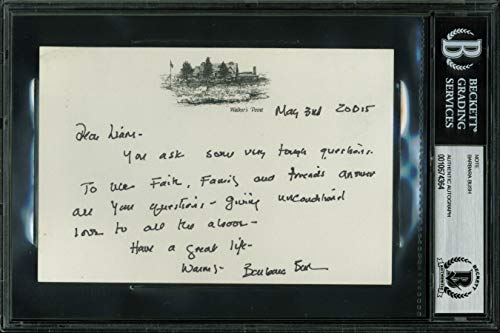 Walker's Point
May 3rd 20015
Dear Liam-
You ask some very tough questions.
To me Faith, Family and friends answer
all your questions - giving unconditional
love to all the above-
Have a great life-
Warmly- Barbara Bush
BECKETT
GRADING
SERVICES
NOTE
BARBARA BUSH
AUTHENTIC AUTOGRAPH
0010674364
BECKETT
AUTHENTIC